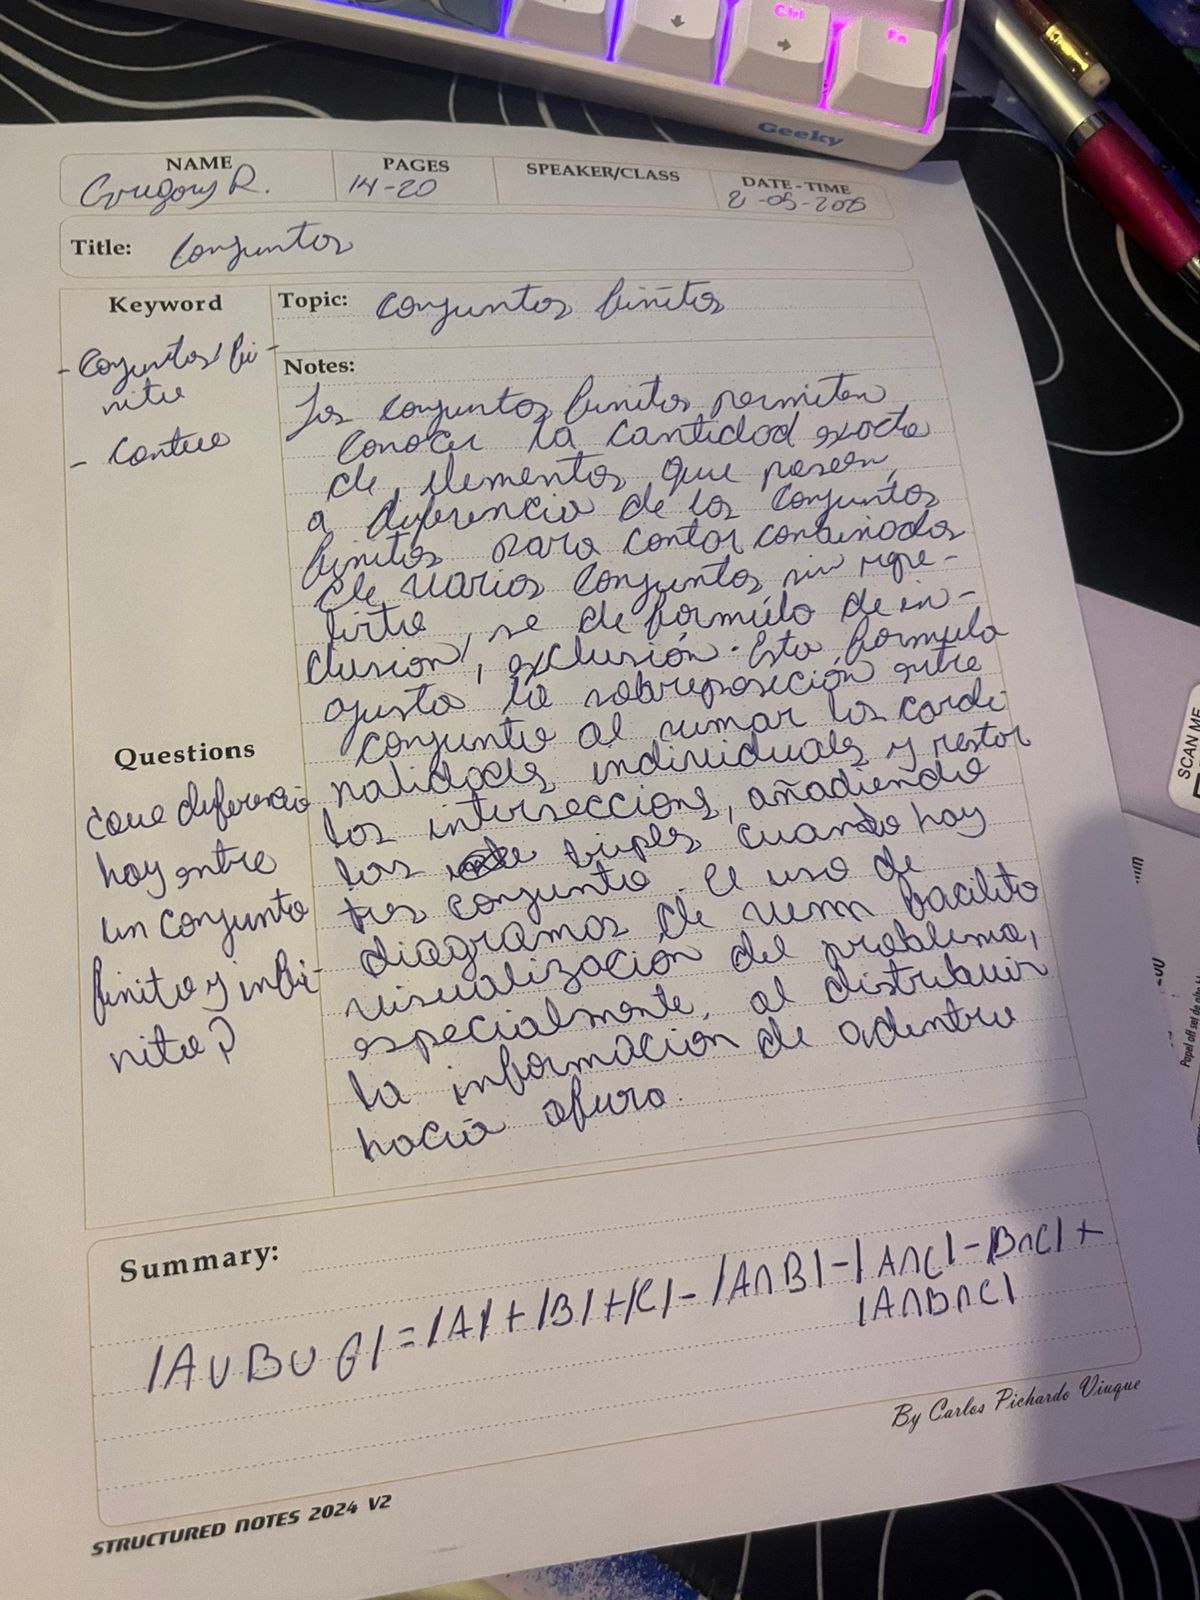 Ctrl
Fn
Geeky
NAME
Gregory R.
PAGES
14-20
SPEAKER/CLASS
DATE-TIME
2-05-2025
Title: Conjuntos
Keyword
- Conjuntos fi-
nito
- Conteo
Topic: Conjuntos finitos
Notes:
Los conjuntos finitos permiten
conocer la cantidad exacta
de elementos que poseen,
a diferencia de los conjuntos
finitos para contar combinados
de varios conjuntos sin repe-
tirto, se de formúlo de in-
clusion, exclusión. Esta formula
ajusta la sobreposición entre
conjunto al sumar los cardi
nalidades individuales y restar
los interseccions, añadiendo
las triples cuando hay
tres conjunto. El uso de
diagramas de venn facilita
visualización del problema,
especialmente, al distribuir
la información de adentro
hacia afuera.
Questions
¿que diferencia
hay entre
un conjunto
finito y infi-
nito?
Summary:
|A∪B∪C|=|A|+|B|+|C|-|A∩B|-|A∩C|-|B∩C|+
|A∩B∩C|
By Carlos Pichardo Viuque
STRUCTURED NOTES 2024 V2
SCAN ME